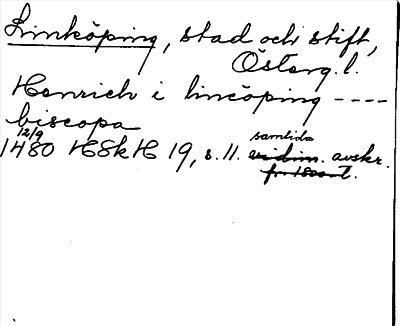 Linköping, stad och stift,
Österg.l.
Henrich i lincöping ----
biscopa
12/9
1480 HSkH 19, s. 11. samtida avskr.